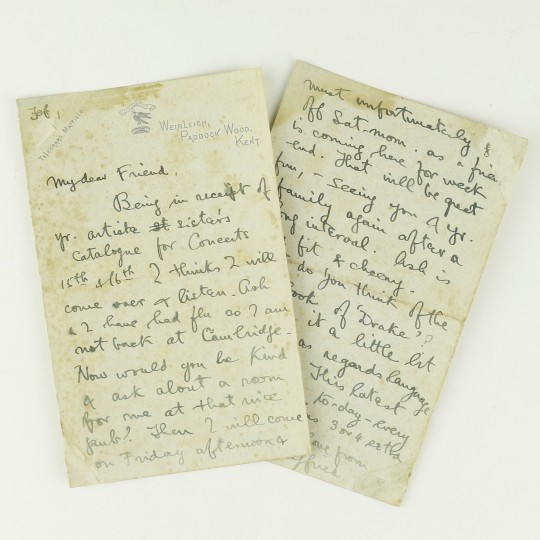 Feb 1
WEIRLEIGH,
PADDOCK WOOD,
KENT.
My dear Friend,
Being in receipt of
yr. artiste sister's
Catalogue for Concerts
15th & 16th I thinks I will
come over & listen. Ash
& I have had flu so I am
not back at Cambridge.
Now would you be kind
& ask about a room
for me at that nice
pub? Then I will come
on Friday afternoon &
must unfortunately
off Sat. morn. as a frie
is coming here for week
end. That will be great
fun, – Seeing you & yr.
family again after a
ong interval. Ash is
fit & cheery.
do you think of the
ook of 'Drake'?
it a little bit
as regards language
This latest
to-day – every
3 or 4 extra
from